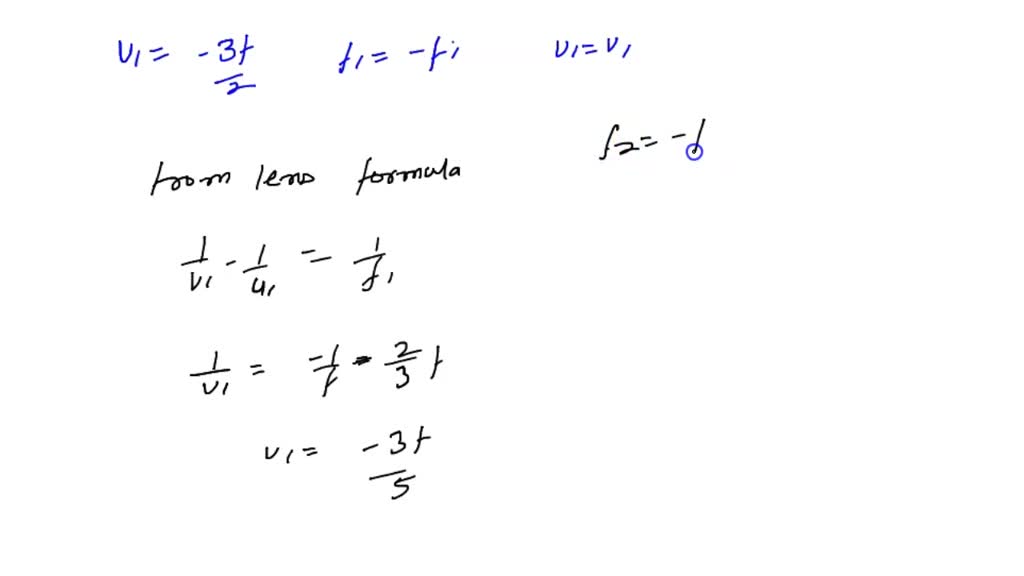 υ₁ = -3f/2 f₁ = -f; υ₁ = υ₁
f₂ = -f
from lens formula
1/υ₁ - 1/u₁ = 1/f₁
1/υ₁ = -1/f - 2/3 f
υ₁ = -3f/5